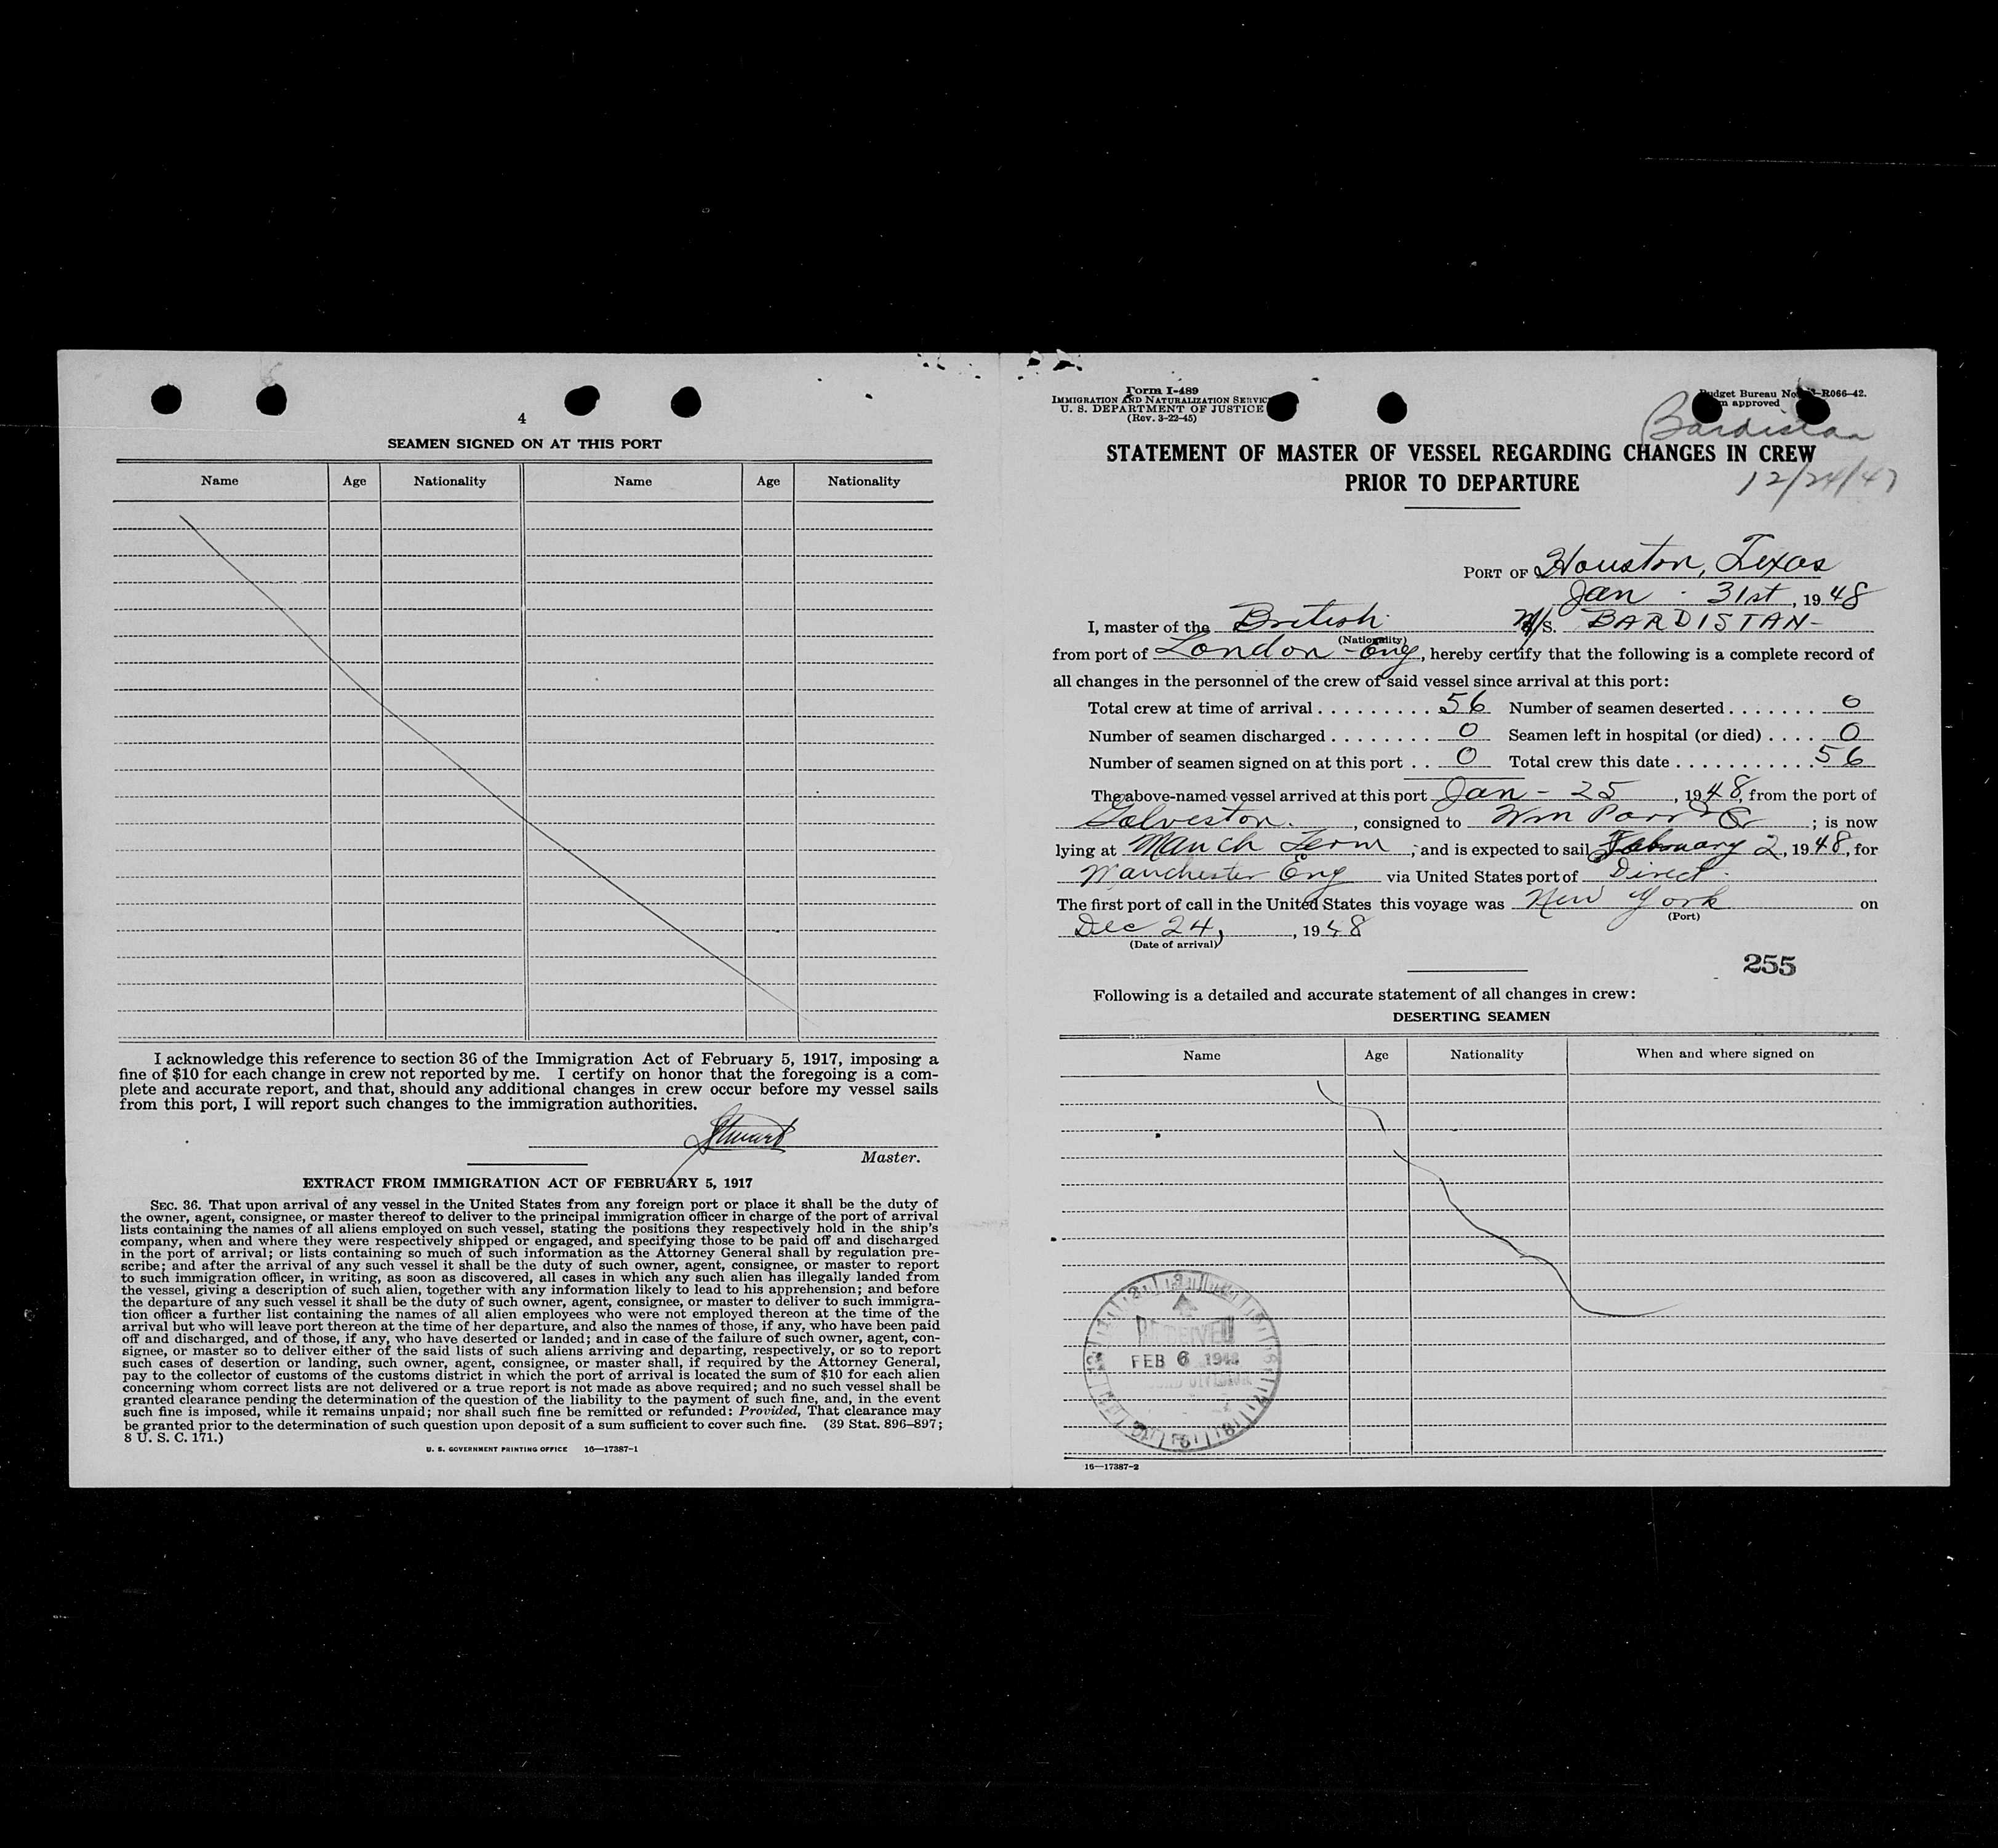 4
SEAMEN SIGNED ON AT THIS PORT
Name Age Nationality Name Age Nationality
I acknowledge this reference to section 36 of the Immigration Act of February 5, 1917, imposing a
fine of $10 for each change in crew not reported by me. I certify on honor that the foregoing is a com-
plete and accurate report, and that, should any additional changes in crew occur before my vessel sails
from this port, I will report such changes to the immigration authorities.
Stuart
Master.
EXTRACT FROM IMMIGRATION ACT OF FEBRUARY 5, 1917
SEC. 36. That upon arrival of any vessel in the United States from any foreign port or place it shall be the duty of
the owner, agent, consignee, or master thereof to deliver to the principal immigration officer in charge of the port of arrival
lists containing the names of all aliens employed on such vessel, stating the positions they respectively hold in the ship's
company, when and where they were respectively shipped or engaged, and specifying those to be paid off and discharged
in the port of arrival; or lists containing so much of such information as the Attorney General shall by regulation pre-
scribe; and after the arrival of any such vessel it shall be the duty of such owner, agent, consignee, or master to report
to such immigration officer, in writing, as soon as discovered, all cases in which any such alien has illegally landed from
the vessel, giving a description of such alien, together with any information likely to lead to his apprehension; and before
the departure of any such vessel it shall be the duty of such owner, agent, consignee, or master to deliver to such immigra-
tion officer a further list containing the names of all alien employees who were not employed thereon at the time of the
arrival but who will leave port thereon at the time of her departure, and also the names of those, if any, who have been paid
off and discharged, and of those, if any, who have deserted or landed; and in case of the failure of such owner, agent, con-
signee, or master so to deliver either of the said lists of such aliens arriving and departing, respectively, or so to report
such cases of desertion or landing, such owner, agent, consignee, or master shall, if required by the Attorney General,
pay to the collector of customs of the customs district in which the port of arrival is located the sum of $10 for each alien
concerning whom correct lists are not delivered or a true report is not made as above required; and no such vessel shall be
granted clearance pending the determination of the question of the liability to the payment of such fine, and, in the event
such fine is imposed, while it remains unpaid; nor shall such fine be remitted or refunded: Provided, That clearance may
be granted prior to the determination of such question upon deposit of a sum sufficient to cover such fine. (39 Stat. 896–897;
8 U. S. C. 171.)
U. S. GOVERNMENT PRINTING OFFICE 16—17387-1
Form I-489
IMMIGRATION AND NATURALIZATION SERVICE
U. S. DEPARTMENT OF JUSTICE
(Rev. 3-22-45)
Budget Bureau No. R066-42.
approved
Bardistan
STATEMENT OF MASTER OF VESSEL REGARDING CHANGES IN CREW
PRIOR TO DEPARTURE
12/24/47
PORT OF Houston, Texas
Jan. 31st, 1948
I, master of the British M/S. BARDISTAN
(Nationality)
from port of London - Eng, hereby certify that the following is a complete record of
all changes in the personnel of the crew of said vessel since arrival at this port:
Total crew at time of arrival . . . . . . . . . 56 Number of seamen deserted . . . . . . . 0
Number of seamen discharged . . . . . . . . 0 Seamen left in hospital (or died) . . . . 0
Number of seamen signed on at this port . . 0 Total crew this date . . . . . . . . . . . 56
The above-named vessel arrived at this port Jan - 25, 1948, from the port of
Galveston., consigned to Wm Parr & Co; is now
lying at Manch Term, and is expected to sail February 2, 1948, for
Manchester Eng via United States port of Direct.
The first port of call in the United States this voyage was New York on
(Port)
Dec 24, 1948
(Date of arrival)
255
Following is a detailed and accurate statement of all changes in crew:
DESERTING SEAMEN
Name Age Nationality When and where signed on
RECEIVED
FEB 6 1948
16—17387-2